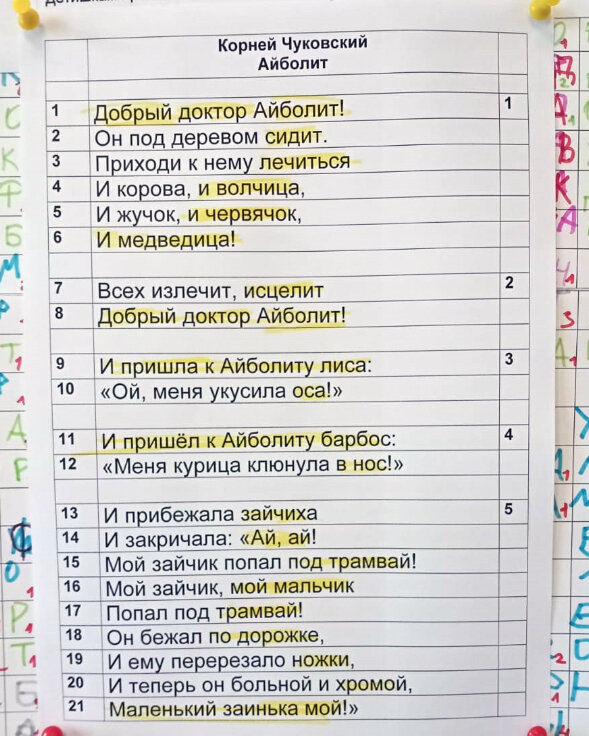 Корней Чуковский
Айболит
1 Добрый доктор Айболит! 1
2 Он под деревом сидит.
3 Приходи к нему лечиться
4 И корова, и волчица,
5 И жучок, и червячок,
6 И медведица!
7 Всех излечит, исцелит 2
8 Добрый доктор Айболит!
9 И пришла к Айболиту лиса: 3
10 «Ой, меня укусила оса!»
11 И пришёл к Айболиту барбос: 4
12 «Меня курица клюнула в нос!»
13 И прибежала зайчиха 5
14 И закричала: «Ай, ай!
15 Мой зайчик попал под трамвай!
16 Мой зайчик, мой мальчик
17 Попал под трамвай!
18 Он бежал по дорожке,
19 И ему перерезало ножки,
20 И теперь он больной и хромой,
21 Маленький заинька мой!»